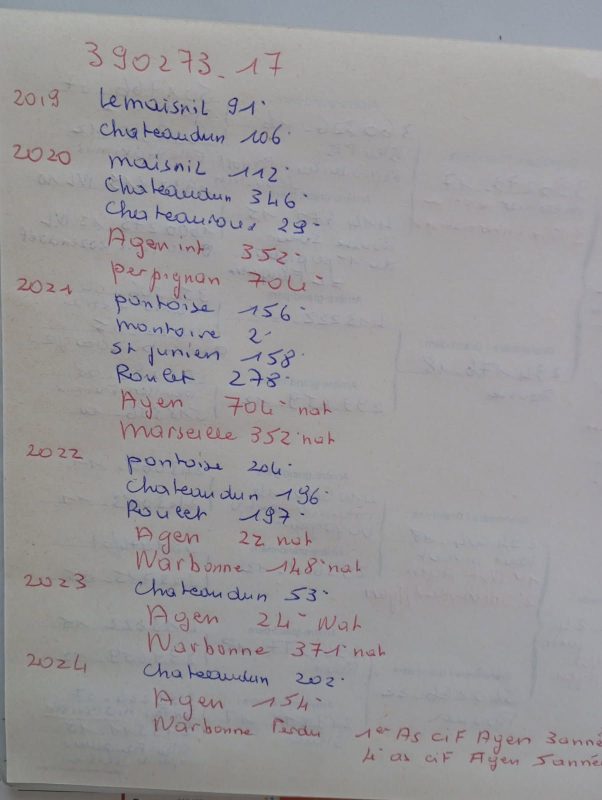 390273-17
2019 Lemaisnil 91·
chateaudun 106·
2020 maisnil 112·
chateaudun 346·
chateauroux 29·
Agen int 352·
perpignan 704·
2021 pontoise 156·
montoire 2·
st junien 158·
Roulet 278·
Agen 704· nat
Marseille 352· nat
2022 pontoise 204·
chateaudun 196·
Roulet 197·
Agen 22 nat
Narbonne 148· nat
2023 chateaudun 53·
Agen 24· Nat
Narbonne 371· nat
2024 chateaudun 202·
Agen 154·
Narbonne Perdu 1er As cif Agen 3anné
4· as cif Agen 5anné